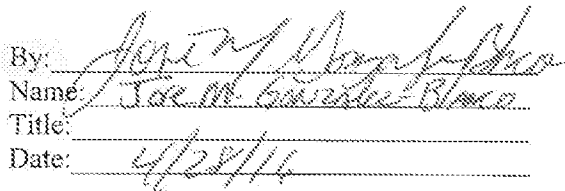 By: 
Name: Joe M. González-Blanco
Title:
Date: 4/28/16